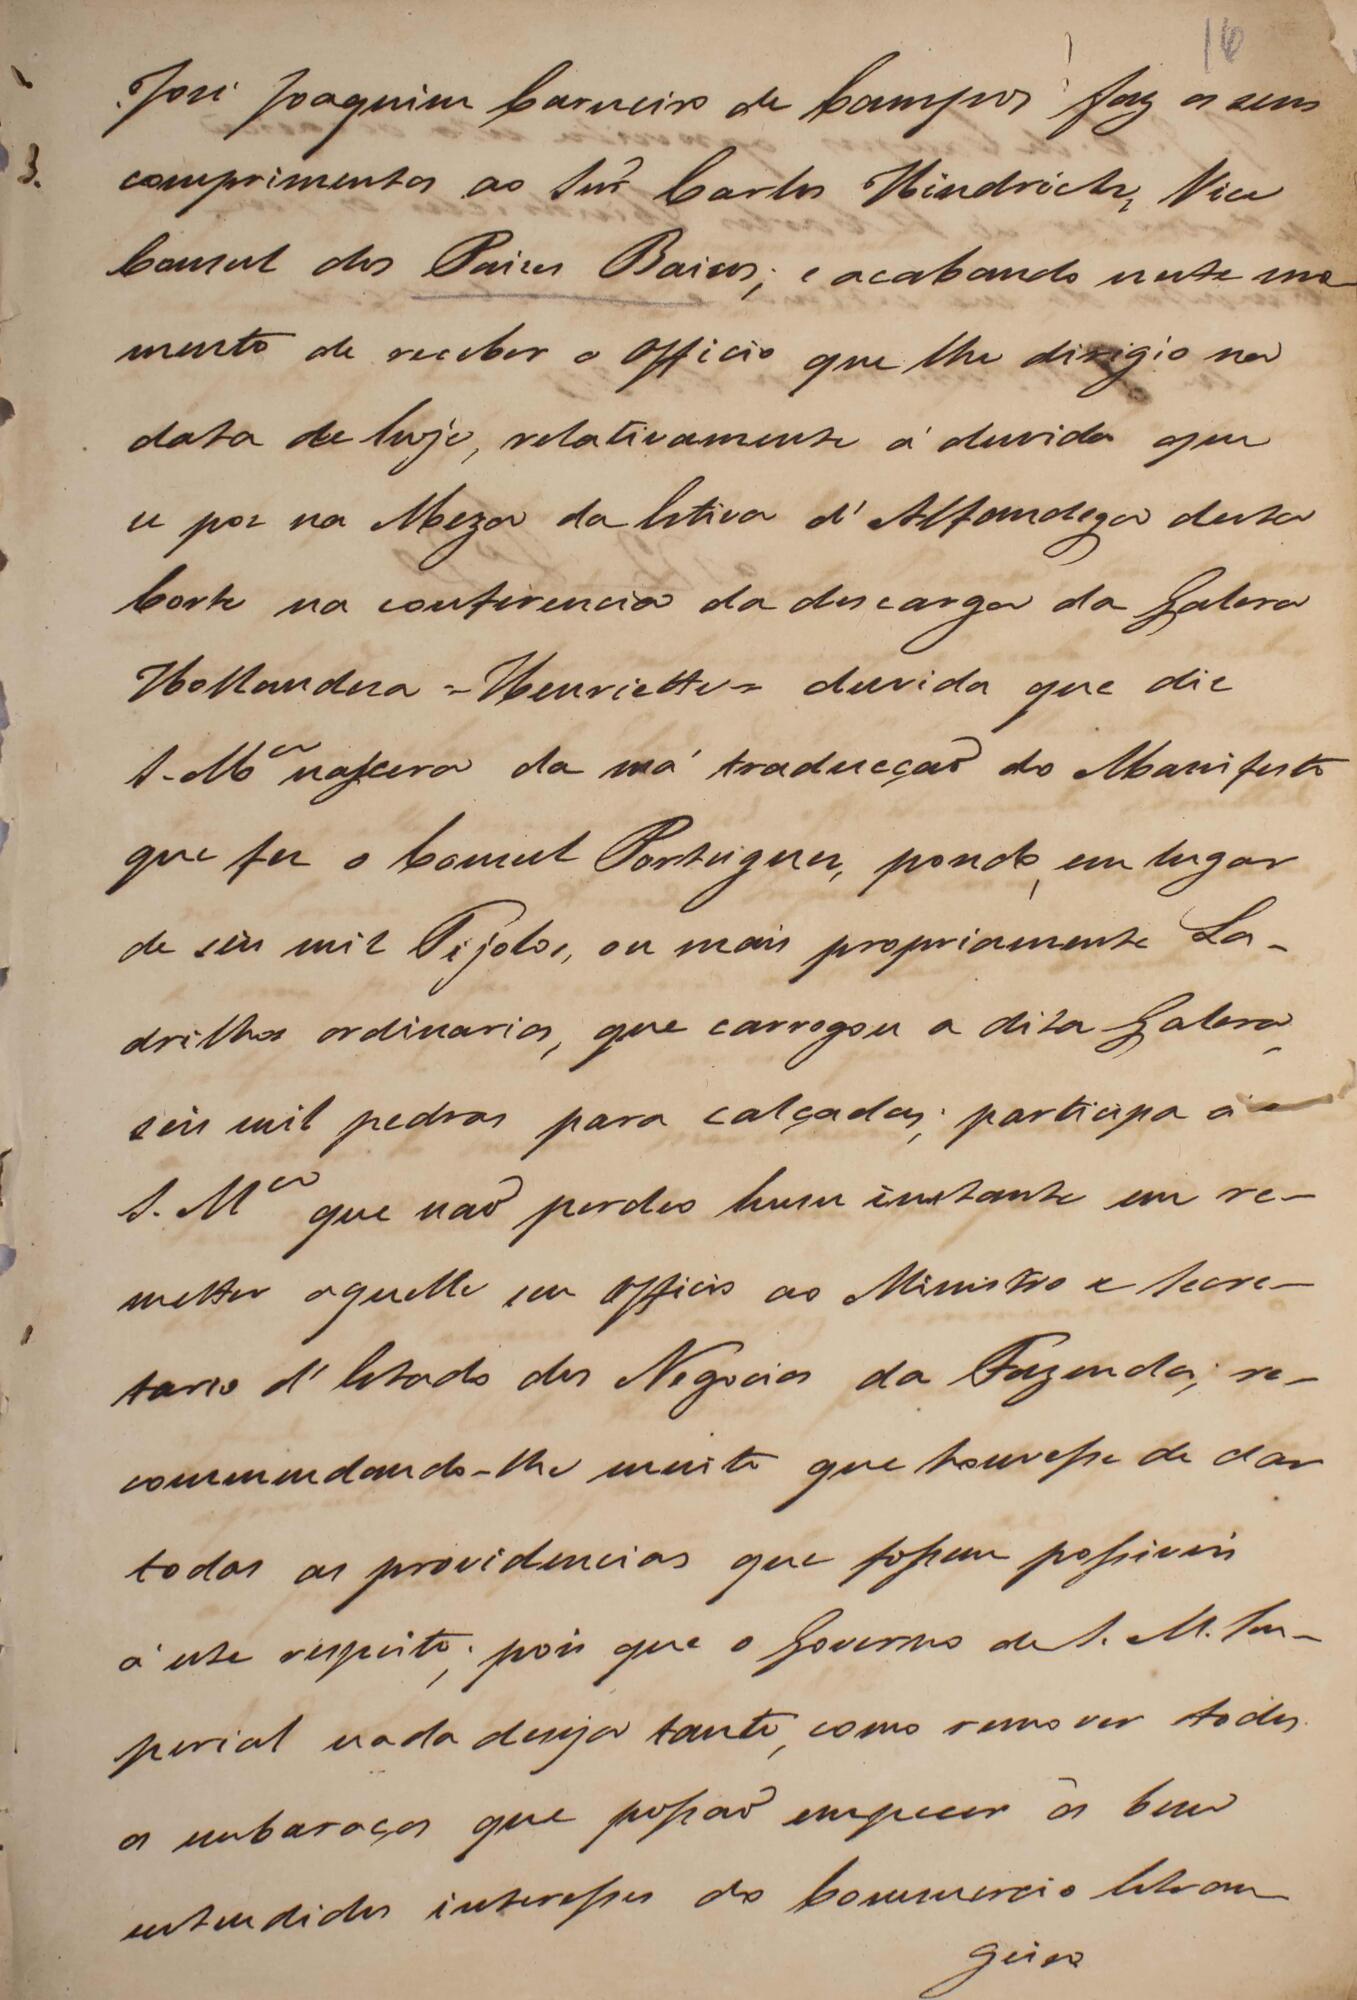 16
José Joaquim Carneiro de Campos faz os seus
3.
comprimentos ao Snr̃ Carlos Hindrichs, Vice
Consul dos Paizes Baixos; e acabando neste mo-
mento de receber o Officio que lhe dirigio na
data de hoje, relativamente á duvida que
se poz na Meza da Estiva d'Alfandega desta
Corte na conferencia da descarga da Galera
Hollandeza = Henriette = duvida que diz
S. Mce nascera da má traducçaõ do Manifesto
que fez o Consul Portuguez, pondo, em lugar
de seis mil Tijolos, ou mais propriamente La-
drilhos ordinarios, que carregou a dita Galera,
seis mil pedras para calçadas; participa á
S. Mce que naõ perdeo hum instante em re-
metter aquelle seu Officio ao Ministro e Secre-
tario d'Estado dos Negocios da Fazenda; re-
commendando-lhe muito que houvesse de dar
todas as providencias que fossem possiveis
á este respeito; pois que o Governo de S. M. Im-
perial nada deseja tanto, como remover todos
os embaraços que possaõ empecer ós bem
entendidos interesses do Commercio Estran-
geiro